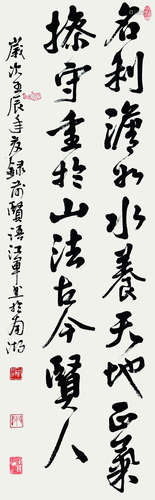 名利淡如水養天地正氣
操守重於山法古今賢人
歲次壬辰年夜錄前賢語江軍書於南湖